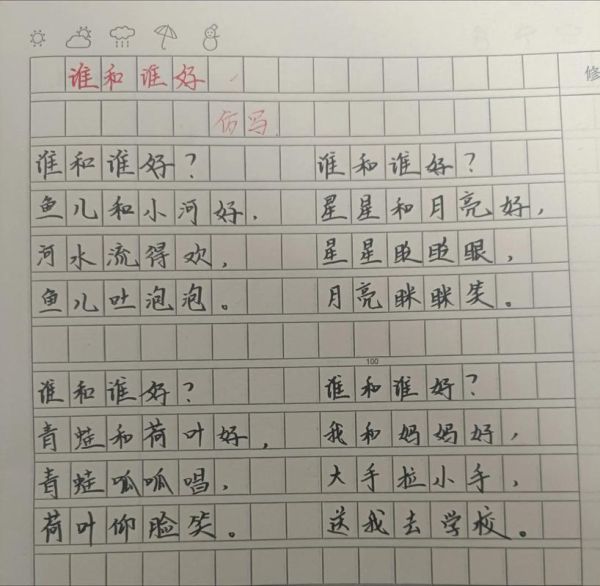 谁和谁好
仿写
谁和谁好？
鱼儿和小河好，
河水流得欢，
鱼儿吐泡泡。
谁和谁好？
星星和月亮好，
星星眨眨眼，
月亮眯眯笑。
100
谁和谁好？
青蛙和荷叶好，
青蛙呱呱唱，
荷叶仰脸笑。
谁和谁好？
我和妈妈好，
大手拉小手，
送我去学校。
修